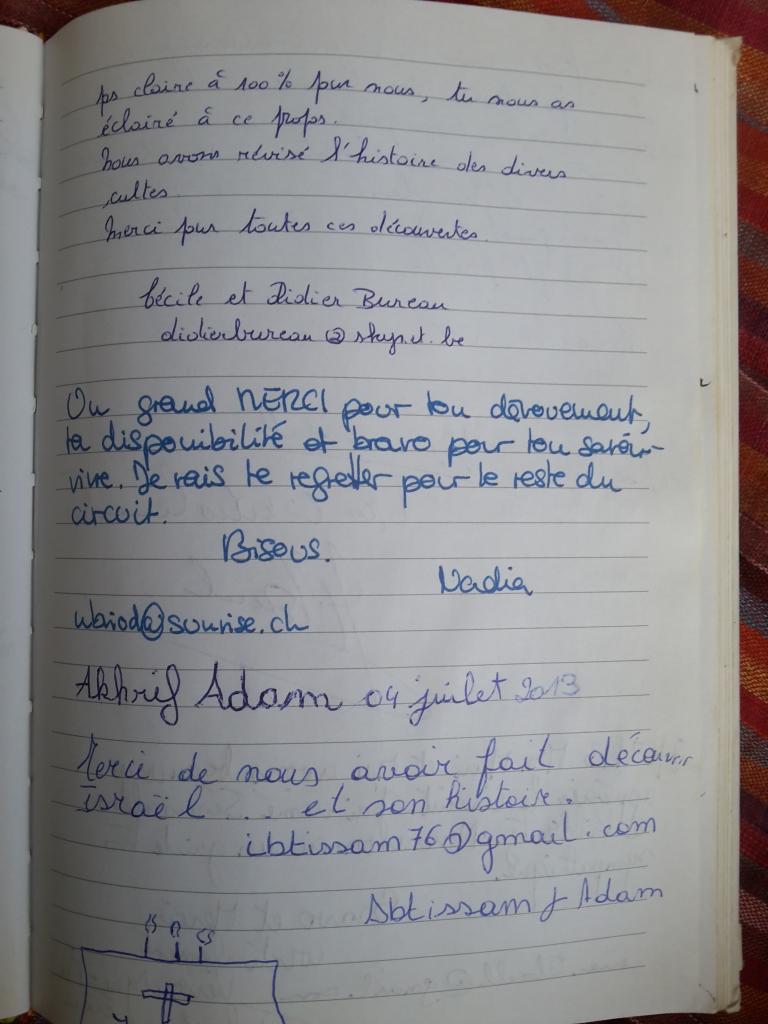 ps claire à 100% pour nous, tu nous as
éclairé à ce propos.
Nous avons révisé l'histoire des divers
cultes
Merci pour toutes ces découvertes.
Cécile et Didier Bureau
didierbureau@skynet.be
Un grand MERCI pour ton dévouement,
ta disponibilité et bravo pour ton savoir-
vivre. Je vais te regretter pour le reste du
circuit.
Bisous.
Nadia
@sunrise.ch
Akhrif Adam 04 juillet 2013
Merci de nous avoir fait découvrir
israël ... et son histoire.
ibtissam76@gmail.com
Ibtissam & Adam